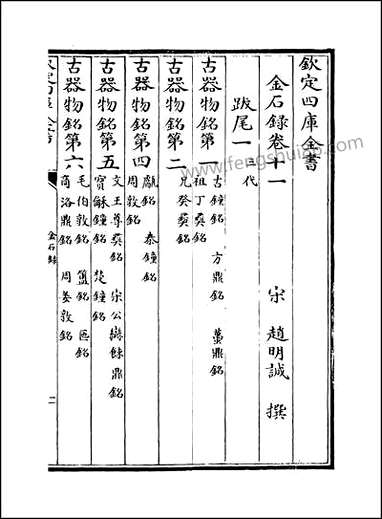 欽定四庫全書
金石錄卷十一
宋 趙明誠 撰
跋尾一 三代
古器物銘第一
古鐘銘 方鼎銘 蠆鼎銘
祖丁彝銘
古器物銘第二
兄癸彝銘
古器物銘第四
甗銘 秦鐘銘
周敦銘
古器物銘第五
文王尊彝銘 宋公䜌餗鼎銘
寶龢鐘銘 楚鐘銘
古器物銘第六
毛伯敦銘 簠銘 匜銘
商洛鼎銘 周姜敦銘
金石錄
www.fengshuipo.com